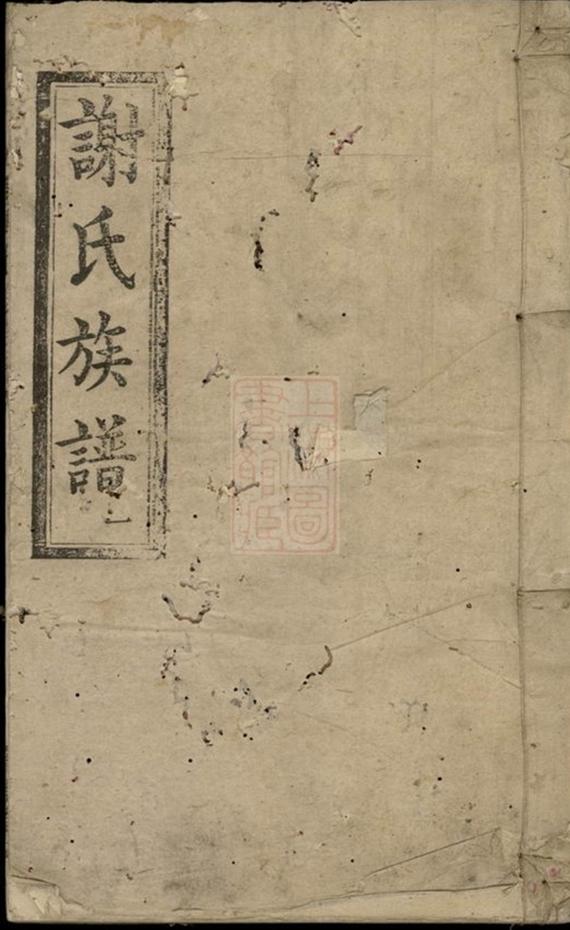 謝氏族譜
一
上海圖
書館藏